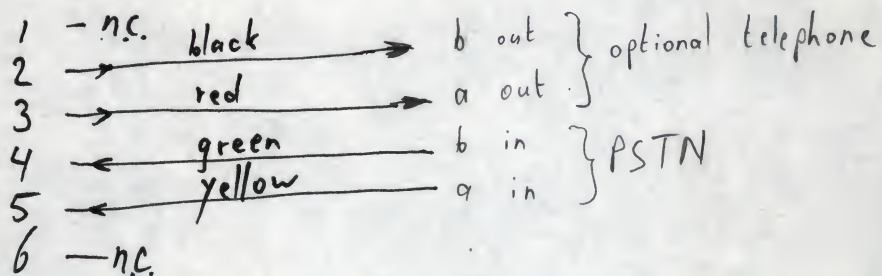 1 - n.c.
2 black b out } optional telephone
3 red a out
4 green b in } PSTN
5 yellow a in
6 - n.c.